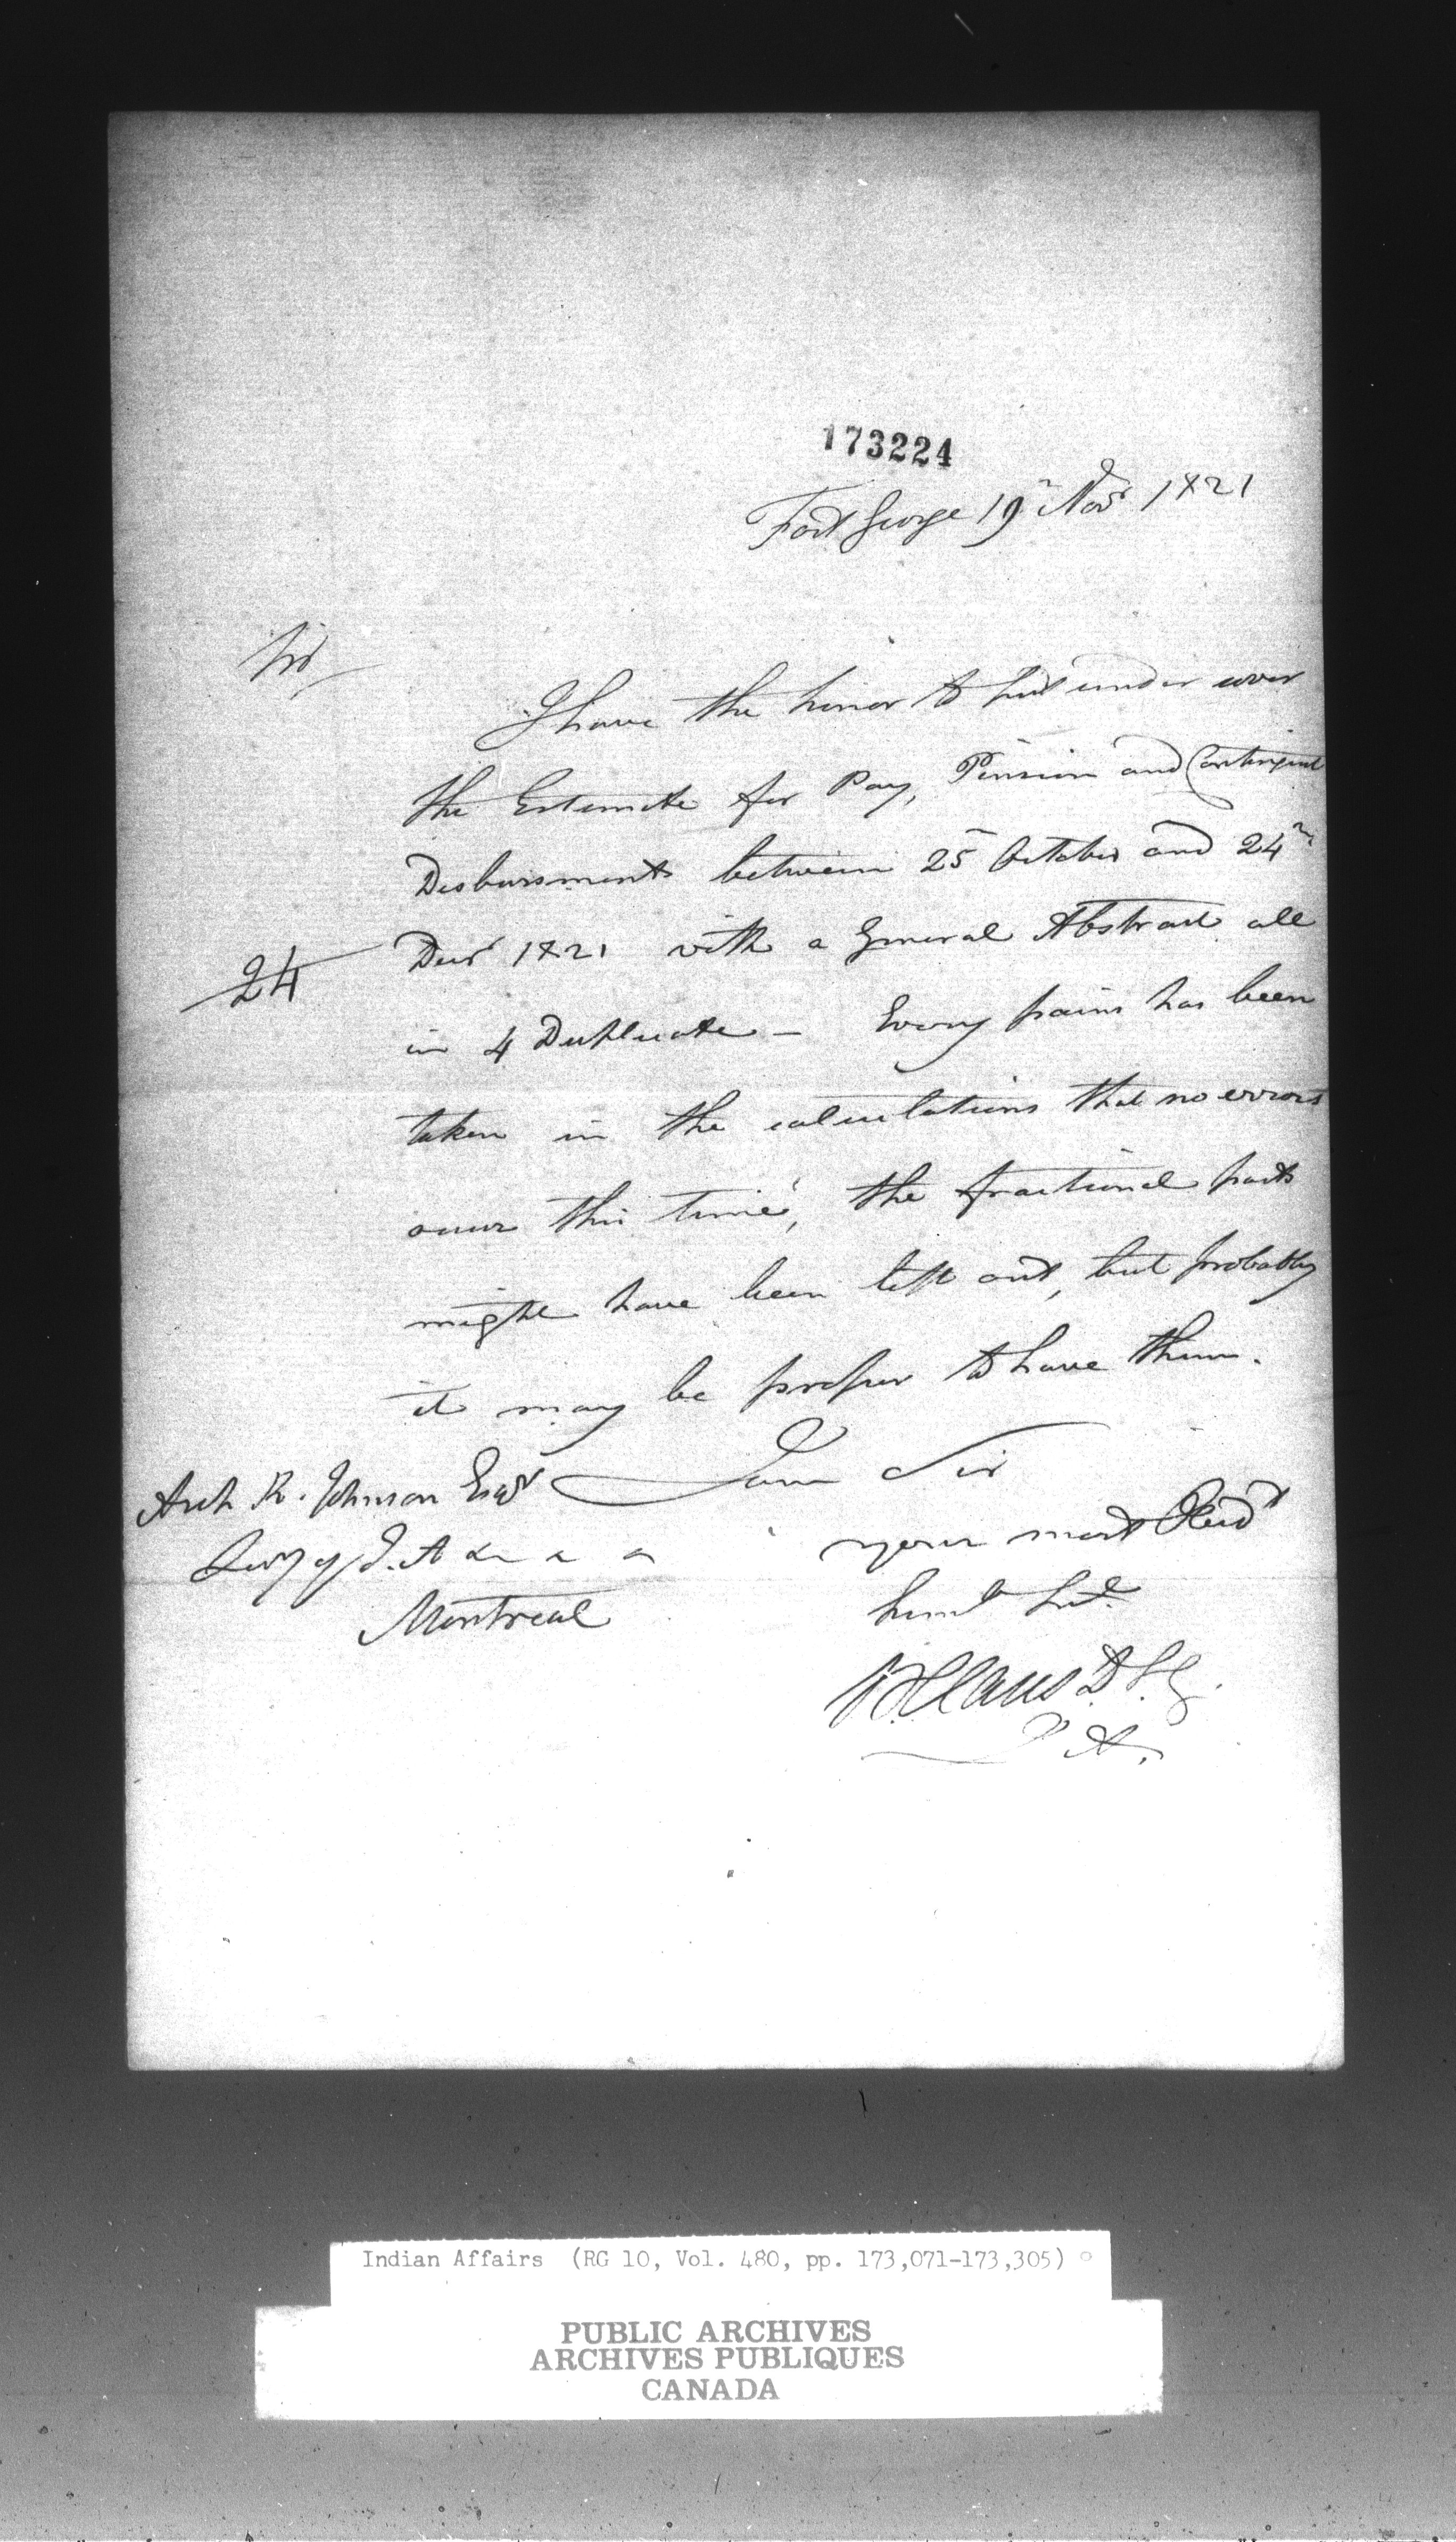 173224
Fort George 19th Novr 1821
Sir,
I have the honor to put under cover
the Estimate for Pay, Pension and Contingent
Disbursments between 25 October and 24th
24
Decr 1821 with a General Abstract all
in 4 Duplicate – Every pains has been
taken in the calculations that no errors
occur this time, the fractional parts
might have been left out, but probably
it may be proper to have them.
I am Sir
your most Obedt
huml Sert
W. Claus D.S.G.
I A.
Arch K. Johnson Esqr
Secy of I. A &c &c &c
Montreal
Indian Affairs (RG 10, Vol. 480, pp. 173,071-173,305)
PUBLIC ARCHIVES
ARCHIVES PUBLIQUES
CANADA